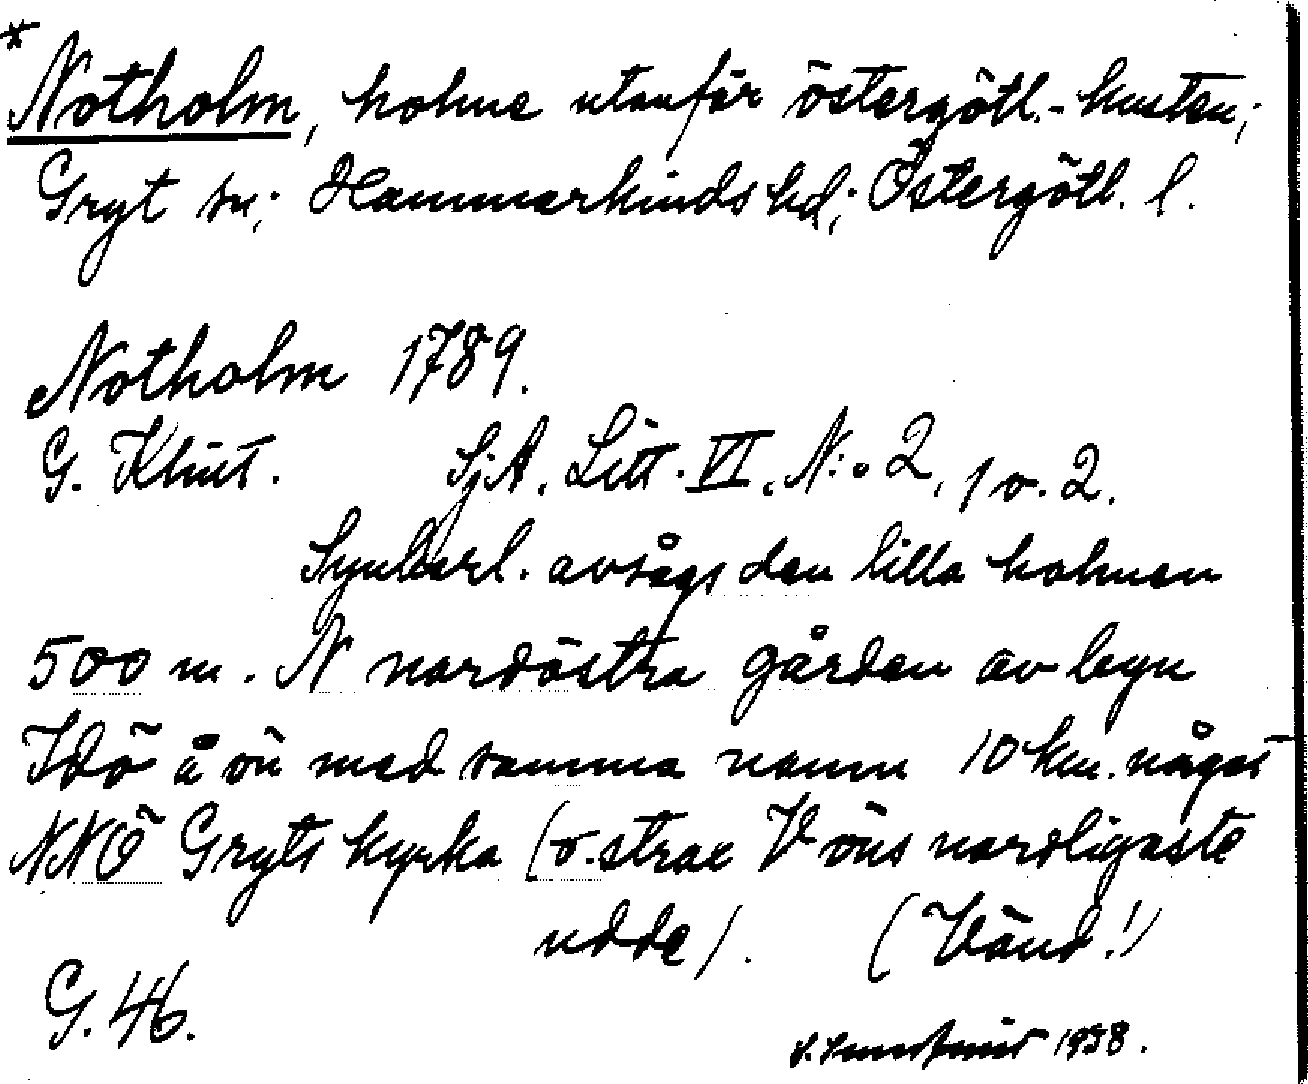 * Notholm, holme utanför östergötl.-kusten;
Gryt sn; Hammarkinds hd; Östergötl. l.
Notholm 1789.
G. Klint. SjA. Litt. VI. N:o 2, 1 o. 2.
Synbarl. avsågs den lilla holmen
500 m. N nordöstra gården av byn
Idö å ön med samma namn 10 km. något
NNÖ Gryts kyrka (o. strax V öns nordligaste
udde). (Vänd!)
G. 46.
1938.